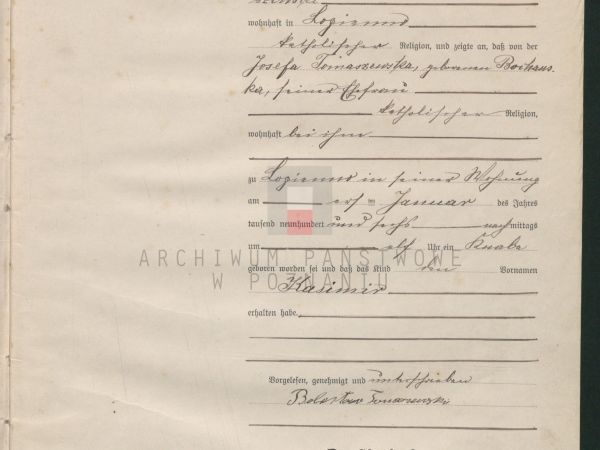 wohnhaft in Lopienno
katholischer Religion, und zeigte an, daß von der
Josefa Tomaszewska, geborenen
ka, seiner Ehefrau
katholischer Religion,
wohnhaft bei ihm
zu Lopienno in seiner Wohnung
am Januar des Jahres
tausend neunhundert und sechs nachmittags
um elf Uhr ein Knabe
geboren worden sei und daß das Kind den Vornamen
Kasimir
erhalten habe.
Vorgelesen, genehmigt und unterschrieben
Boleslaw Tomaszewski
ARCHIWUM PAŃSTWOWE
W POZNANIU